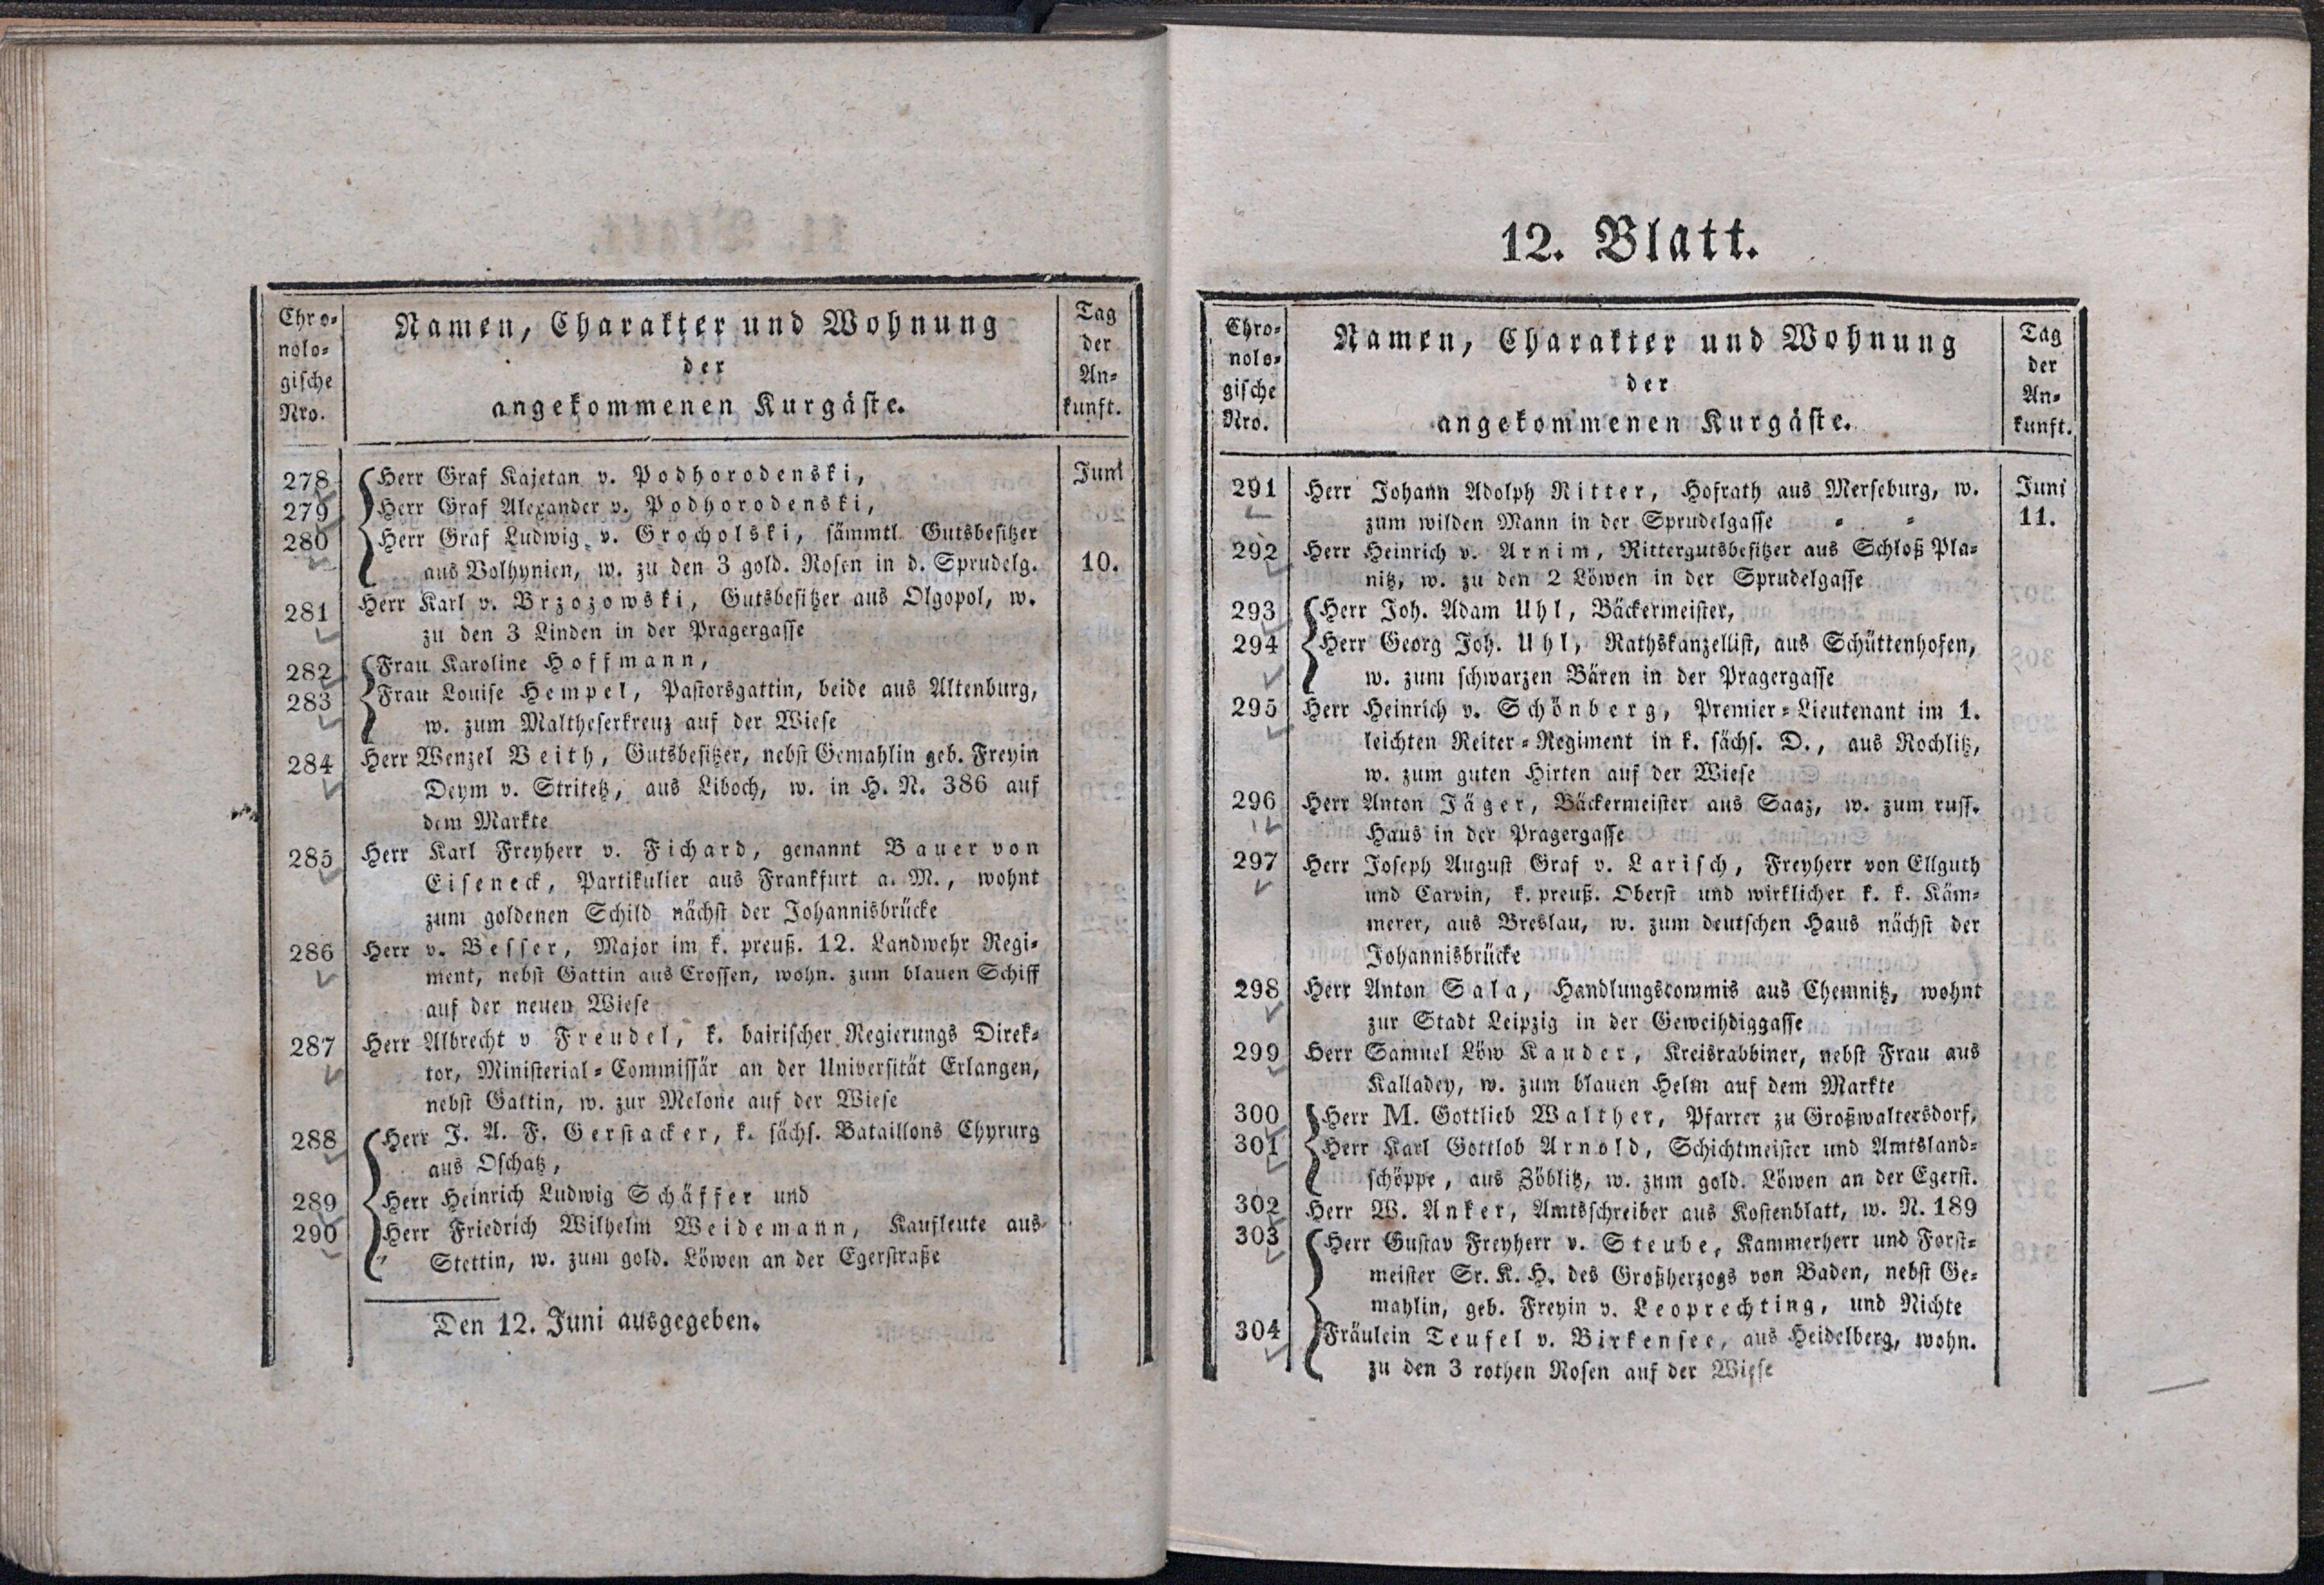 Chro-
nolo-
gische
Nro.
Namen, Charakter und Wohnung
der
angekommenen Kurgäste.
Tag
der
An-
kunft.
278 Herr Graf Kajetan v. Podhorodenski, Juni
279 Herr Graf Alexander v. Podhorodenski,
280 Herr Graf Ludwig v. Grocholski, sämmtl. Gutsbesitzer
aus Volhynien, w. zu den 3 gold. Rosen in d. Sprudelg. 10.
281 Herr Karl v. Brzozowski, Gutsbesitzer aus Olgopol, w.
zu den 3 Linden in der Pragergasse
282 Frau Karoline Hoffmann,
283 Frau Louise Hempel, Pastorsgattin, beide aus Altenburg,
w. zum Maltheserkreuz auf der Wiese
284 Herr Wenzel Veith, Gutsbesitzer, nebst Gemahlin geb. Freyin
Deym v. Stritetz, aus Liboch, w. in H. N. 386 auf
dem Markte
285 Herr Karl Freyherr v. Fichard, genannt Bauer von
Eiseneck, Partikulier aus Frankfurt a. M., wohnt
zum goldenen Schild nächst der Johannisbrücke
286 Herr v. Besser, Major im k. preuß. 12. Landwehr Regi-
ment, nebst Gattin aus Crossen, wohn. zum blauen Schiff
auf der neuen Wiese
287 Herr Albrecht v Freudel, k. bairischer Regierungs Direk-
tor, Ministerial-Commissär an der Universität Erlangen,
nebst Gattin, w. zur Melone auf der Wiese
288 Herr J. A. F. Gerstacker, k. sächs. Bataillons Chyrurg
aus Oschatz,
289 Herr Heinrich Ludwig Schäffer und
290 Herr Friedrich Wilhelm Weidemann, Kaufleute aus
Stettin, w. zum gold. Löwen an der Egerstraße
Den 12. Juni ausgegeben.
12. Blatt.
Chro-
nolo-
gische
Nro.
Namen, Charakter und Wohnung
der
angekommenen Kurgäste.
Tag
der
An-
kunft.
291 Herr Johann Adolph Ritter, Hofrath aus Merseburg, w. Juni
zum wilden Mann in der Sprudelgasse - - 11.
292 Herr Heinrich v. Arnim, Rittergutsbesitzer aus Schloß Pla-
nitz, w. zu den 2 Löwen in der Sprudelgasse
293 Herr Joh. Adam Uhl, Bäckermeister,
294 Herr Georg Joh. Uhl, Rathskanzellist, aus Schüttenhofen,
w. zum schwarzen Bären in der Pragergasse
295 Herr Heinrich v. Schönberg, Premier-Lieutenant im 1.
leichten Reiter-Regiment in k. sächs. D., aus Rochlitz,
w. zum guten Hirten auf der Wiese
296 Herr Anton Jäger, Bäckermeister aus Saaz, w. zum russ.
Haus in der Pragergasse
297 Herr Joseph August Graf v. Larisch, Freyherr von Ellguth
und Carvin, k. preuß. Oberst und wirklicher k. k. Käm-
merer, aus Breslau, w. zum deutschen Haus nächst der
Johannisbrücke
298 Herr Anton Sala, Handlungscommis aus Chemnitz, wohnt
zur Stadt Leipzig in der Geweihdiggasse
299 Herr Samuel Löw Kauder, Kreisrabbiner, nebst Frau aus
Kalladey, w. zum blauen Helm auf dem Markte
300 Herr M. Gottlieb Walther, Pfarrer zu Großwaltersdorf,
301 Herr Karl Gottlob Arnold, Schichtmeister und Amtsland-
schöppe, aus Zöblitz, w. zum gold. Löwen an der Egerst.
302 Herr W. Anker, Amtsschreiber aus Kostenblatt, w. N. 189
303 Herr Gustav Freyherr v. Steube, Kammerherr und Forst-
meister Sr. K. H. des Großherzogs von Baden, nebst Ge-
mahlin, geb. Freyin v. Leoprechting, und Nichte
304 Fräulein Teufel v. Birkensee, aus Heidelberg, wohn.
zu den 3 rothen Rosen auf der Wiese